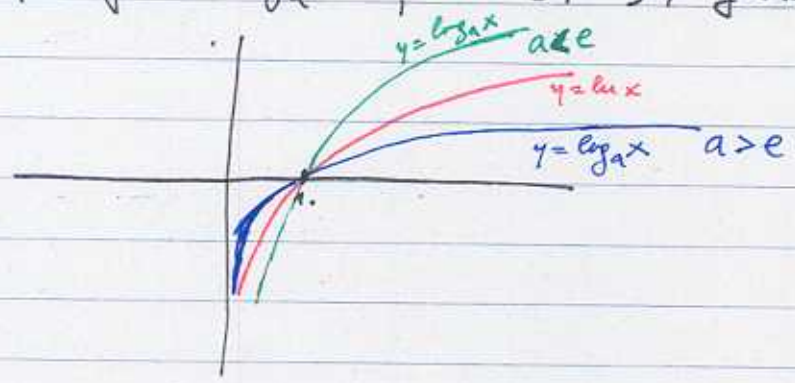 y = logₐx a < e
y = ln x
y = logₐx a > e
1.